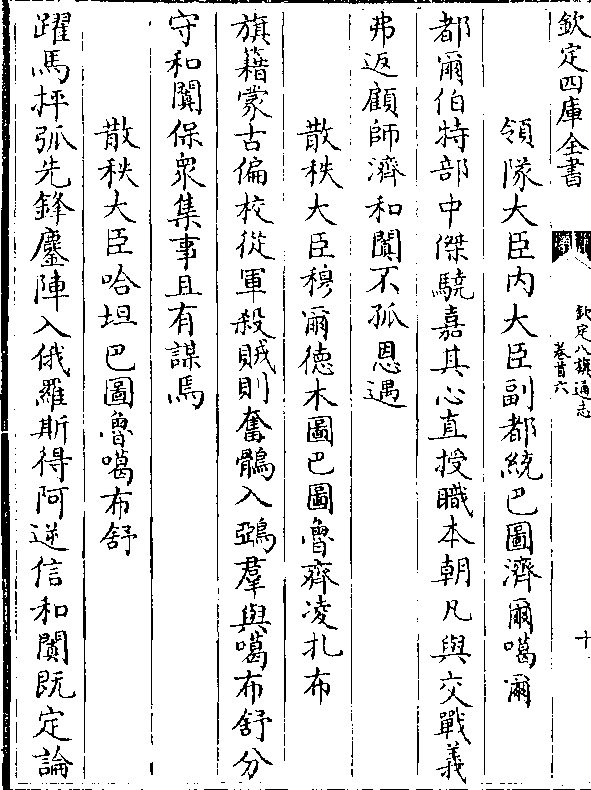 欽定四庫全書
欽定八旗通志
卷首六
十
領隊大臣内大臣副都統巴圖濟爾噶爾
都爾伯特部中傑驍嘉其心直授職本朝凡與交戰義
弗返顧師濟和闐不孤恩遇
散秩大臣穆爾德木圖巴圖魯齊凌扎布
旗籍蒙古偏校從軍殺賊則奮鶻入鵶羣與噶布舒分
守和闐保衆集事且有謀焉
散秩大臣哈坦巴圖魯噶布舒
躍馬抨弧先鋒鏖陣入俄羅斯得阿逆信和闐既定論